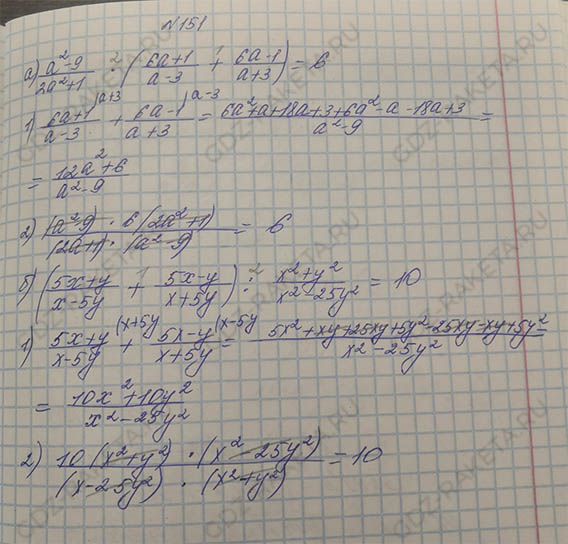 №151
а) (a²-9)/(2a²+1) · ((6a+1)/(a-3) + (6a-1)/(a+3)) = 6
1) (6a+1)/(a-3) |a+3 + (6a-1)/(a+3) |a-3 = (6a²+a+18a+3+6a²-a-18a+3)/(a²-9) =
= (12a²+6)/(a²-9)
2) ((a²-9) · 6(2a²+1))/((2a+1) · (a²-9)) = 6
б) ((5x+y)/(x-5y) + (5x-y)/(x+5y)) : (x²+y²)/(x²-25y²) = 10
1) (5x+y)/(x-5y) (x+5y + (5x-y)/(x+5y) (x-5y = (5x²+xy+25xy+5y²-25xy-xy+5y²)/(x²-25y²) =
= (10x²+10y²)/(x²-25y²)
2) (10(x²+y²) · (x²-25y²))/((x-25y²) · (x²+y²)) = 10
GDZ-RAKETA.RU